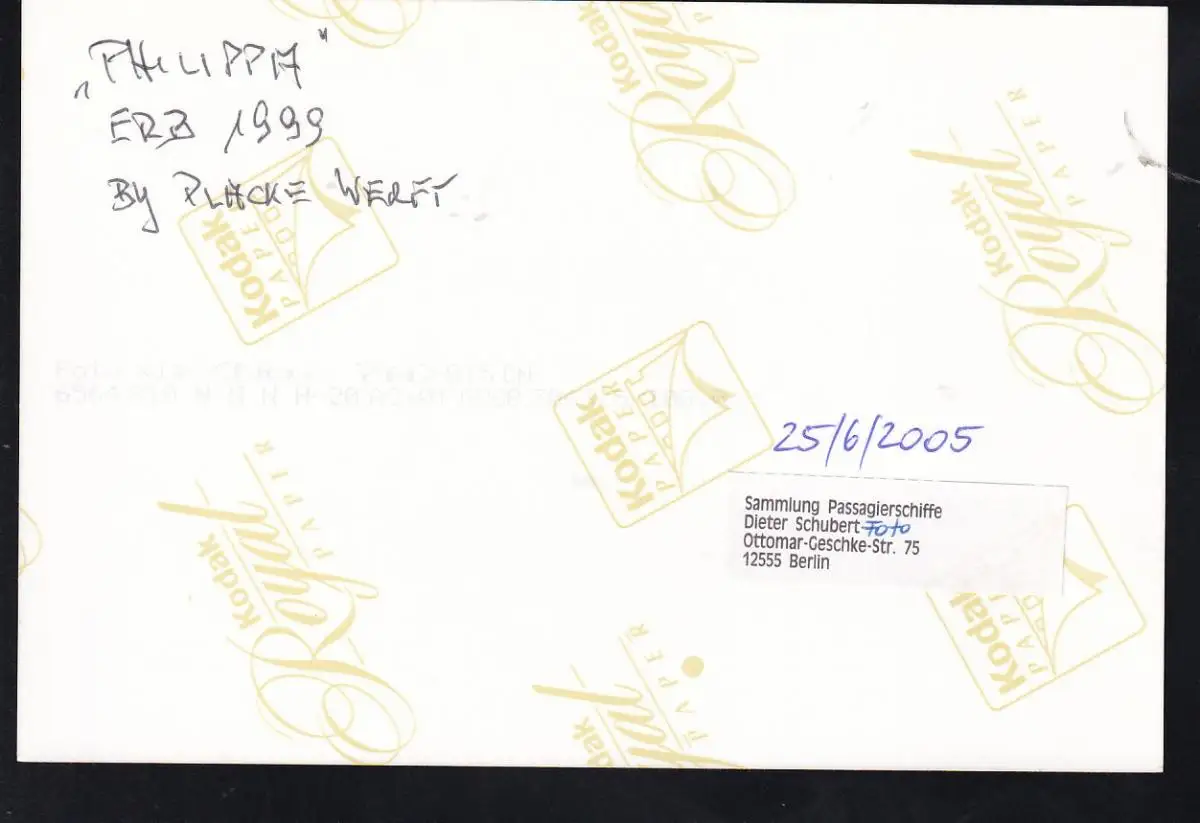 „PHILIPPA"
ERB 1999
BY PLACKE WERFT
Kodak
Royal
PAPER
Kodak
Royal
PAPER
Kodak
PAPER
Kodak
PAPER
25/6/2005
Sammlung Passagierschiffe
Dieter Schubert-Foto
Ottomar-Geschke-Str. 75
12555 Berlin
Kodak
Royal
PAPER
Kodak
Royal
PAPER
Kodak
PAPER